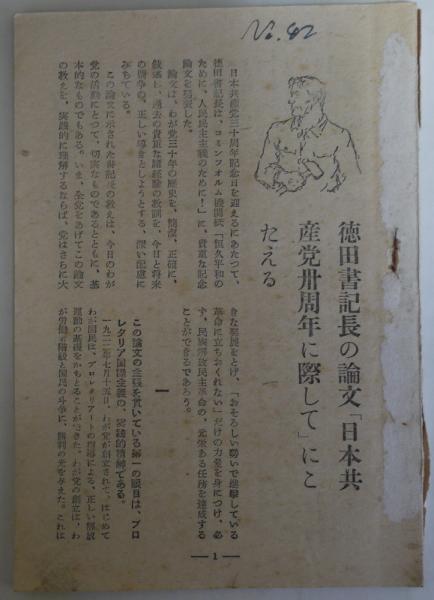 No. 42
徳田書記長の論文「日本共
産党卅周年に際して」にこ
たえる
日本共産党三十周年記念日を迎えるにあたつて、
徳田書記長は、コミンフオルム機関紙「恒久平和の
ために、人民民主主義のために！」に、貴重な記念
論文を発表した。
論文は、わが党三十年の歴史を、簡潔、正確に、
叙述し、過去の貴重な諸経験の教訓を、今日と将来
の闘争の、正しい導きとしようとする、深い配慮に
みちている。
この論文に示された書記長の教えは、今日のわが
党の活動にとつて、切実なものであるとともに、基
本的なものでもある。いま、全党をあげてこの論文
の教えを、実践的に理解するならば、党はさらに大
きな発展をとげ、「おそろしい勢いで進撃している
革命に立ちおくれない」だけの力量を身につけ、必
ず、民族解放民主革命の、光栄ある任務を達成する
ことができるであろう。
一
この論文の全残を貫いている第一の眼目は、プロ
レタリア国際主義の、実践的精神である。
一九二二年七月十五日、わが党が創立されて、はじめて
わが国民は、プロレタリアートの指導による、正しい解放
運動の基礎をかちとることができた。わが党の創立は、わ
が労働者階級と国民の斗争に、勝利の光を与えた。これは
— 1 —